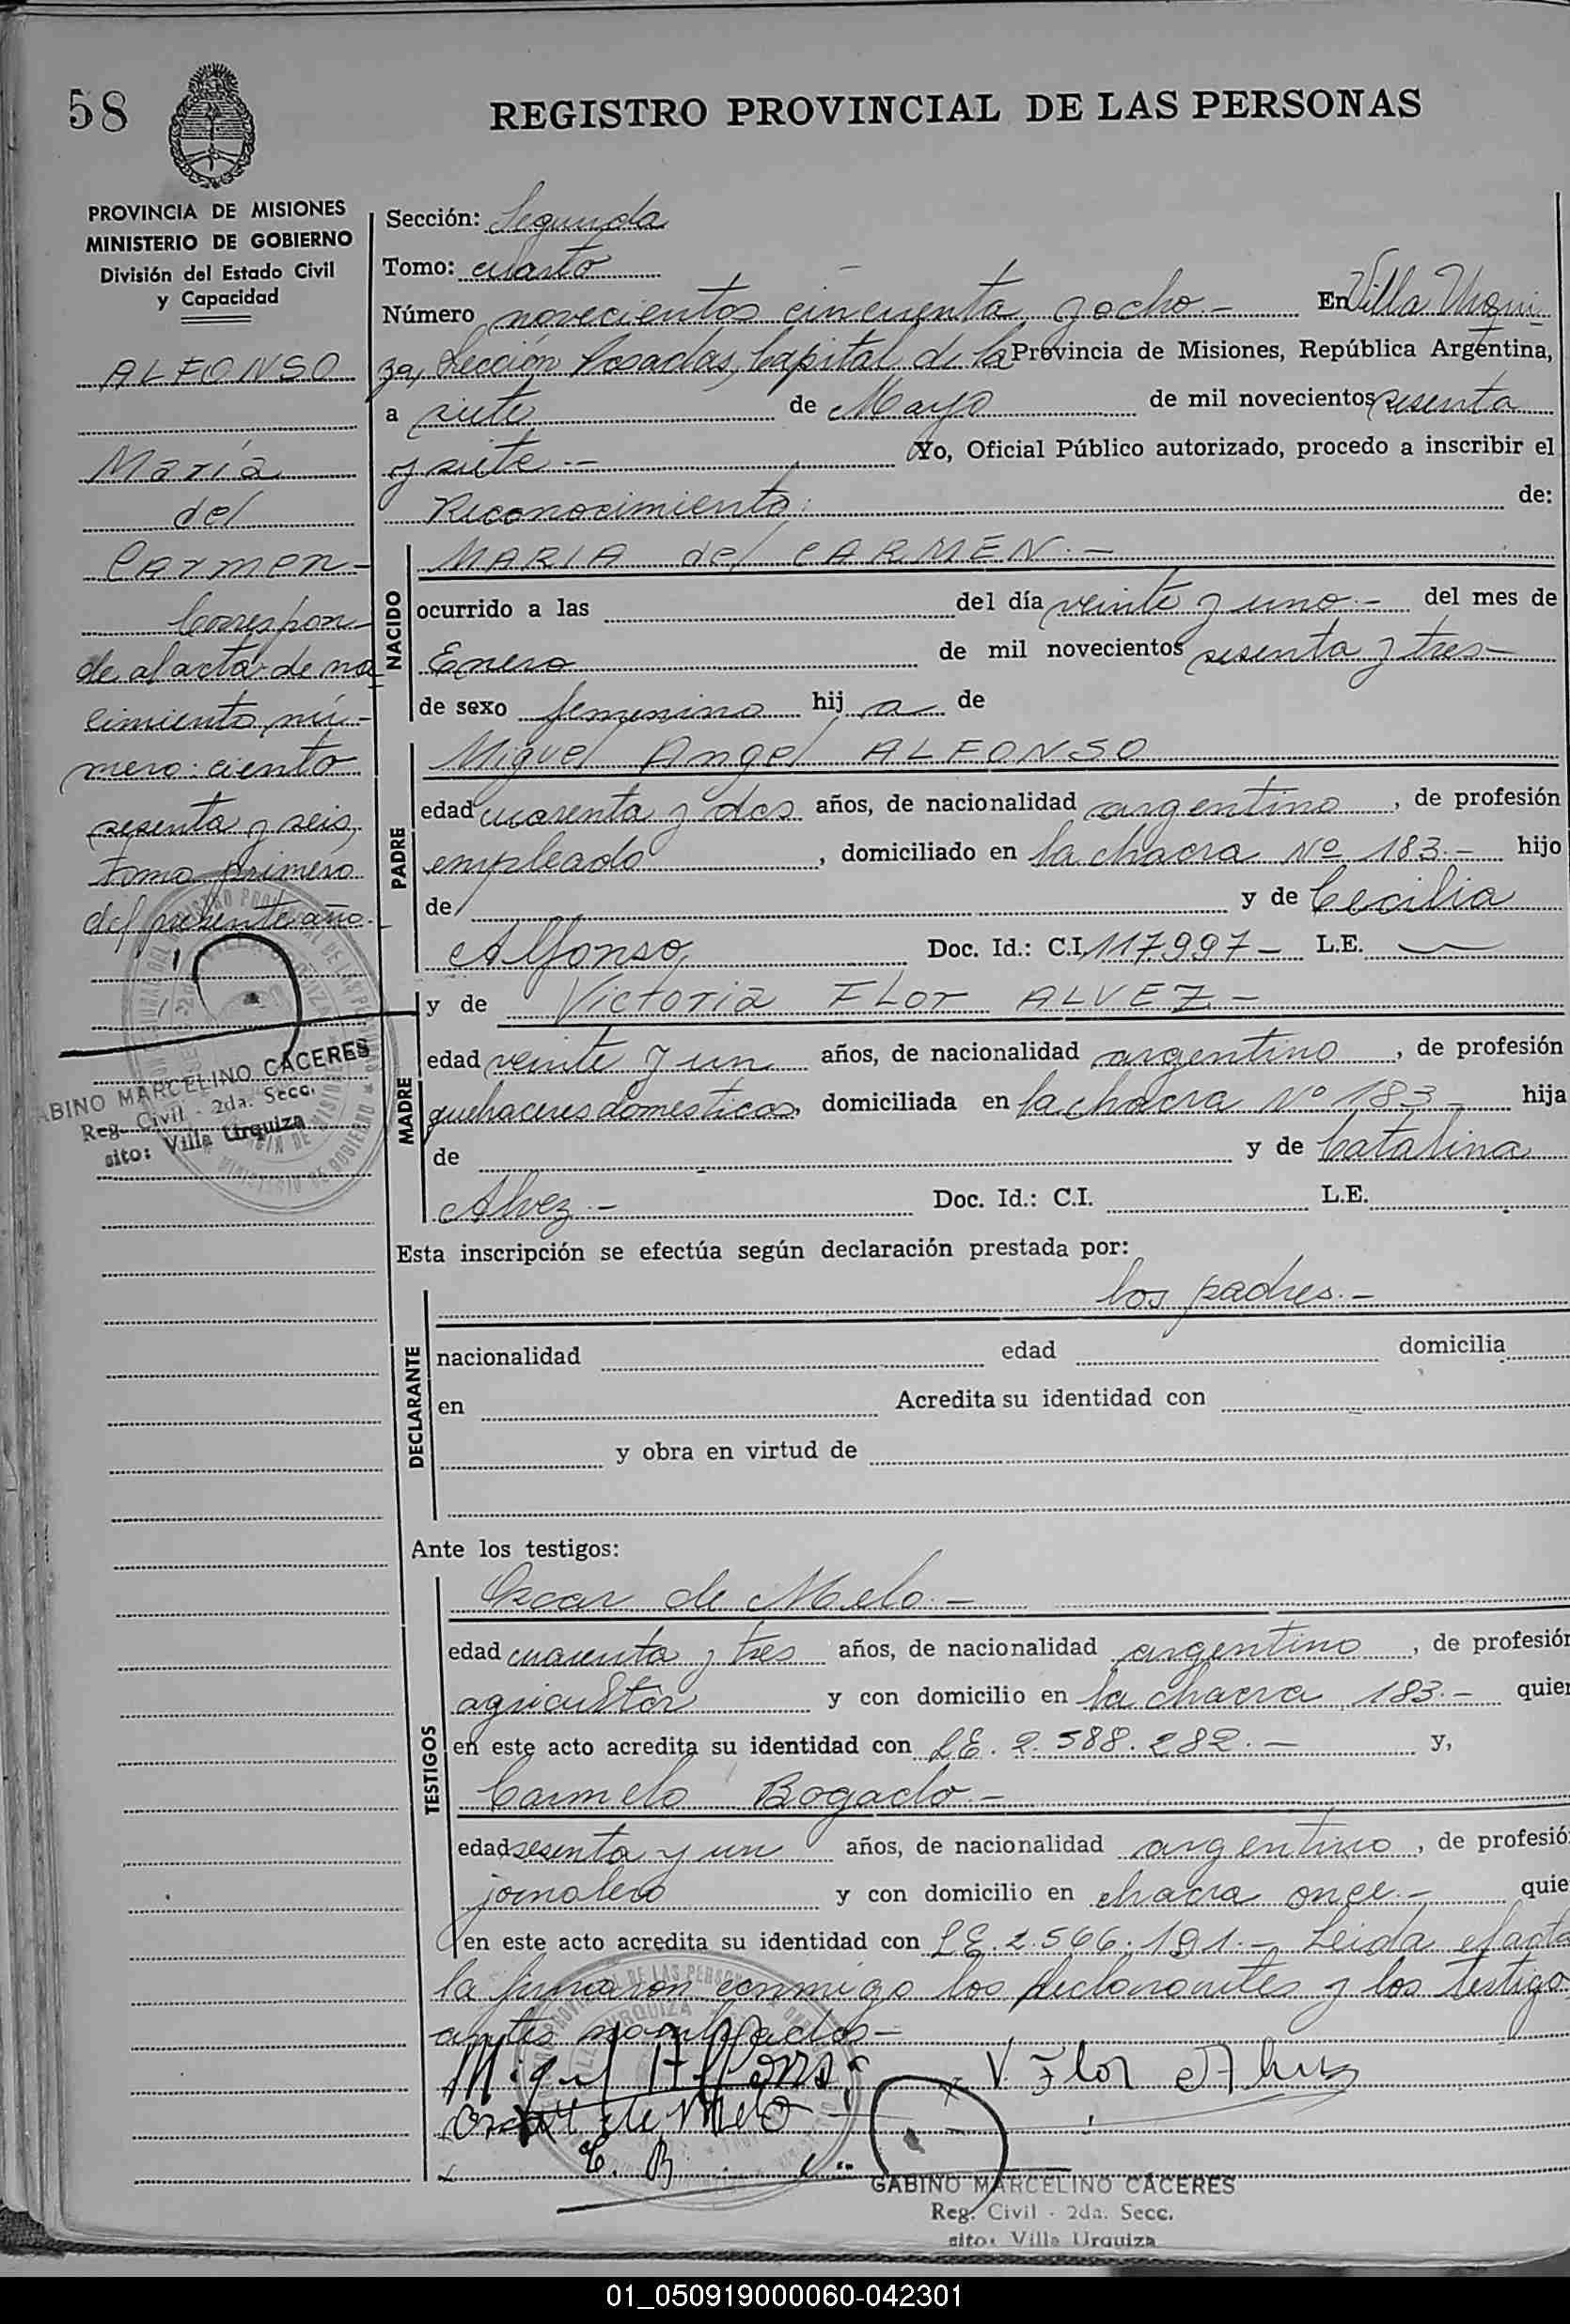 58
REGISTRO PROVINCIAL DE LAS PERSONAS
PROVINCIA DE MISIONES
MINISTERIO DE GOBIERNO
División del Estado Civil
y Capacidad
ALFONSO
María
del
Carmen-
Correspon-
de al acta de na
cimiento nú-
mero: ciento
sesenta y seis,
tomo primero
del presente año.
GABINO MARCELINO CACERES
Reg. Civil - 2da. Secc.
sito: Villa Urquiza
Sección: Segunda
Tomo: cuarto
Número novecientos cincuenta y ocho.- En Villa Urqui-
za, Sección Posadas, Capital de la Provincia de Misiones, República Argentina,
a siete de Mayo de mil novecientos sesenta
y siete.- Yo, Oficial Público autorizado, procedo a inscribir el
Reconocimiento: de:
NACIDO
MARIA del CARMEN.-
ocurrido a las del día veinte y uno.- del mes de
Enero de mil novecientos sesenta y tres-
de sexo femenino hij a de
PADRE
Miguel Angel ALFONSO
edad cuarenta y dos años, de nacionalidad argentino, de profesión
empleado, domiciliado en la chacra Nº 183.- hijo
de y de Cecilia
Alfonso, Doc. Id.: C.I. 117.997- L.E. —
MADRE
y de Victoria FLor ALVEZ-
edad veinte y un años, de nacionalidad argentino, de profesión
quehaceres domesticos, domiciliada en la chacra Nº 183- hija
de y de Catalina
Alvez.- Doc. Id.: C.I. L.E.
Esta inscripción se efectúa según declaración prestada por:
DECLARANTE
los padres.-
nacionalidad edad domicilia
en Acredita su identidad con
y obra en virtud de
Ante los testigos:
TESTIGOS
Oscar de Melo.-
edad cuarenta y tres años, de nacionalidad argentino, de profesión
agricultor y con domicilio en la chacra 183.- quien
en este acto acredita su identidad con LE. 2.588.282.- y,
Carmelo Bogado.-
edad sesenta y un años, de nacionalidad argentino, de profesió
jornalero y con domicilio en chacra once.- quie
en este acto acredita su identidad con LE. 2.566.191.- Leida el acta
la firmaron conmigo los declarantes y los testigo
antes nombrados-
Miguel Alfonso V. Flor Alvez
Oscar de Melo
C. B.
GABINO MARCELINO CACERES
Reg. Civil - 2da. Secc.
sito: Villa Urquiza
01_050919000060-042301